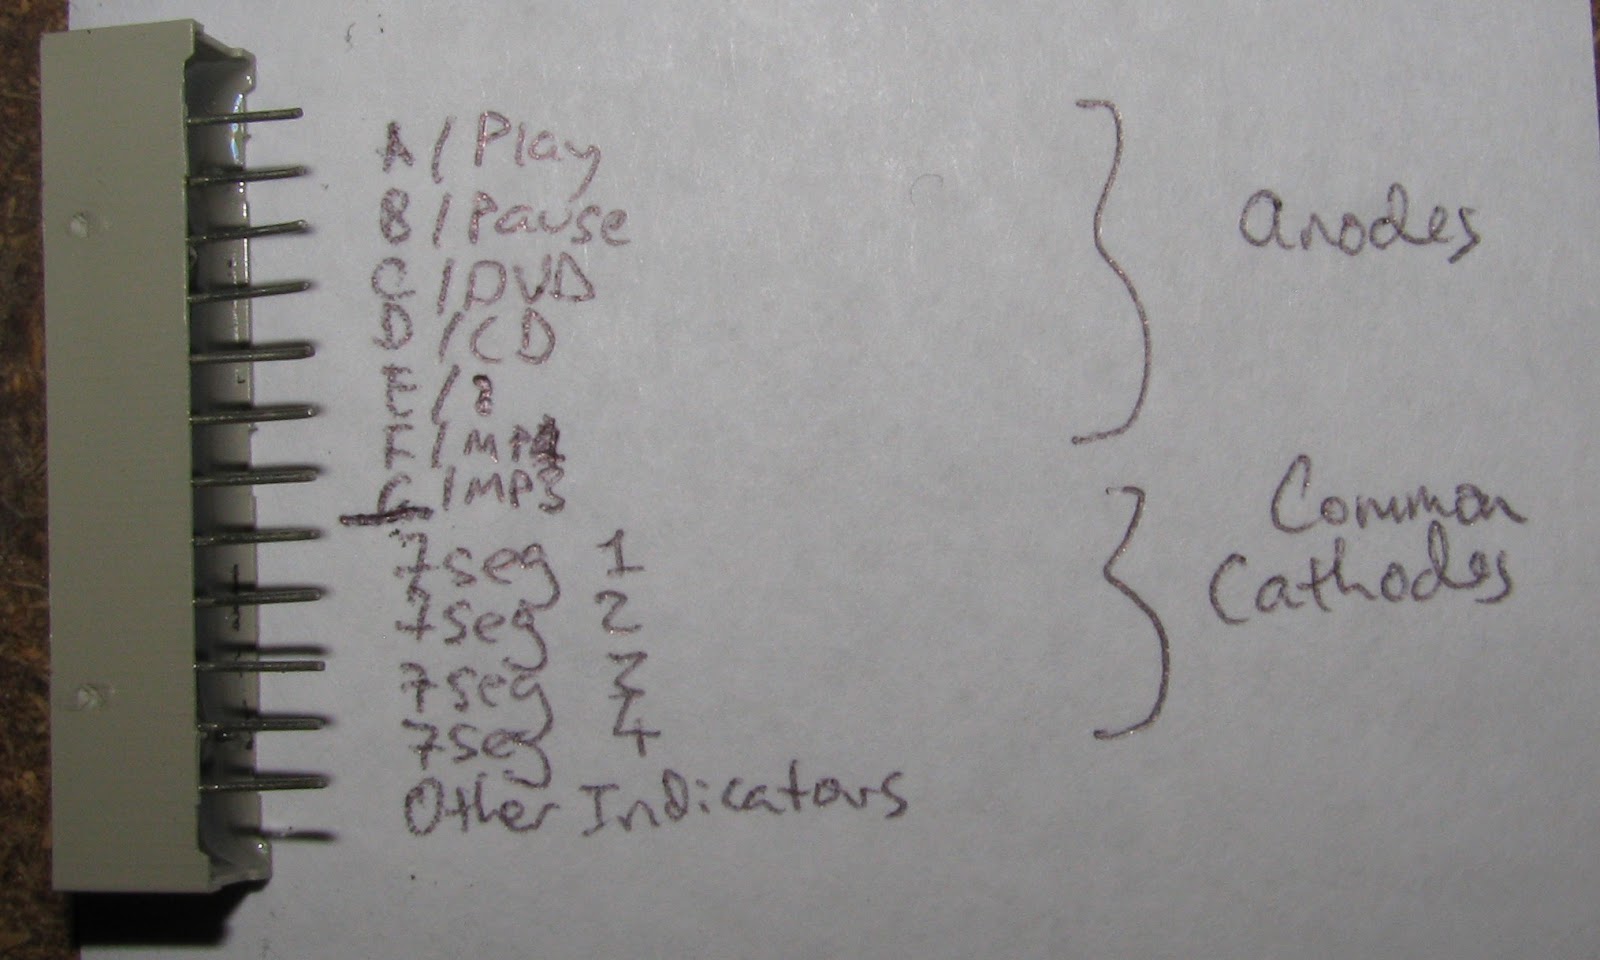 A / Play
B / Pause
C / DVD
D / CD
E / ?
F / MP4
G / MP3
7seg 1
7seg 2
7seg 3
7seg 4
Other Indicators
anodes
Common
Cathodes